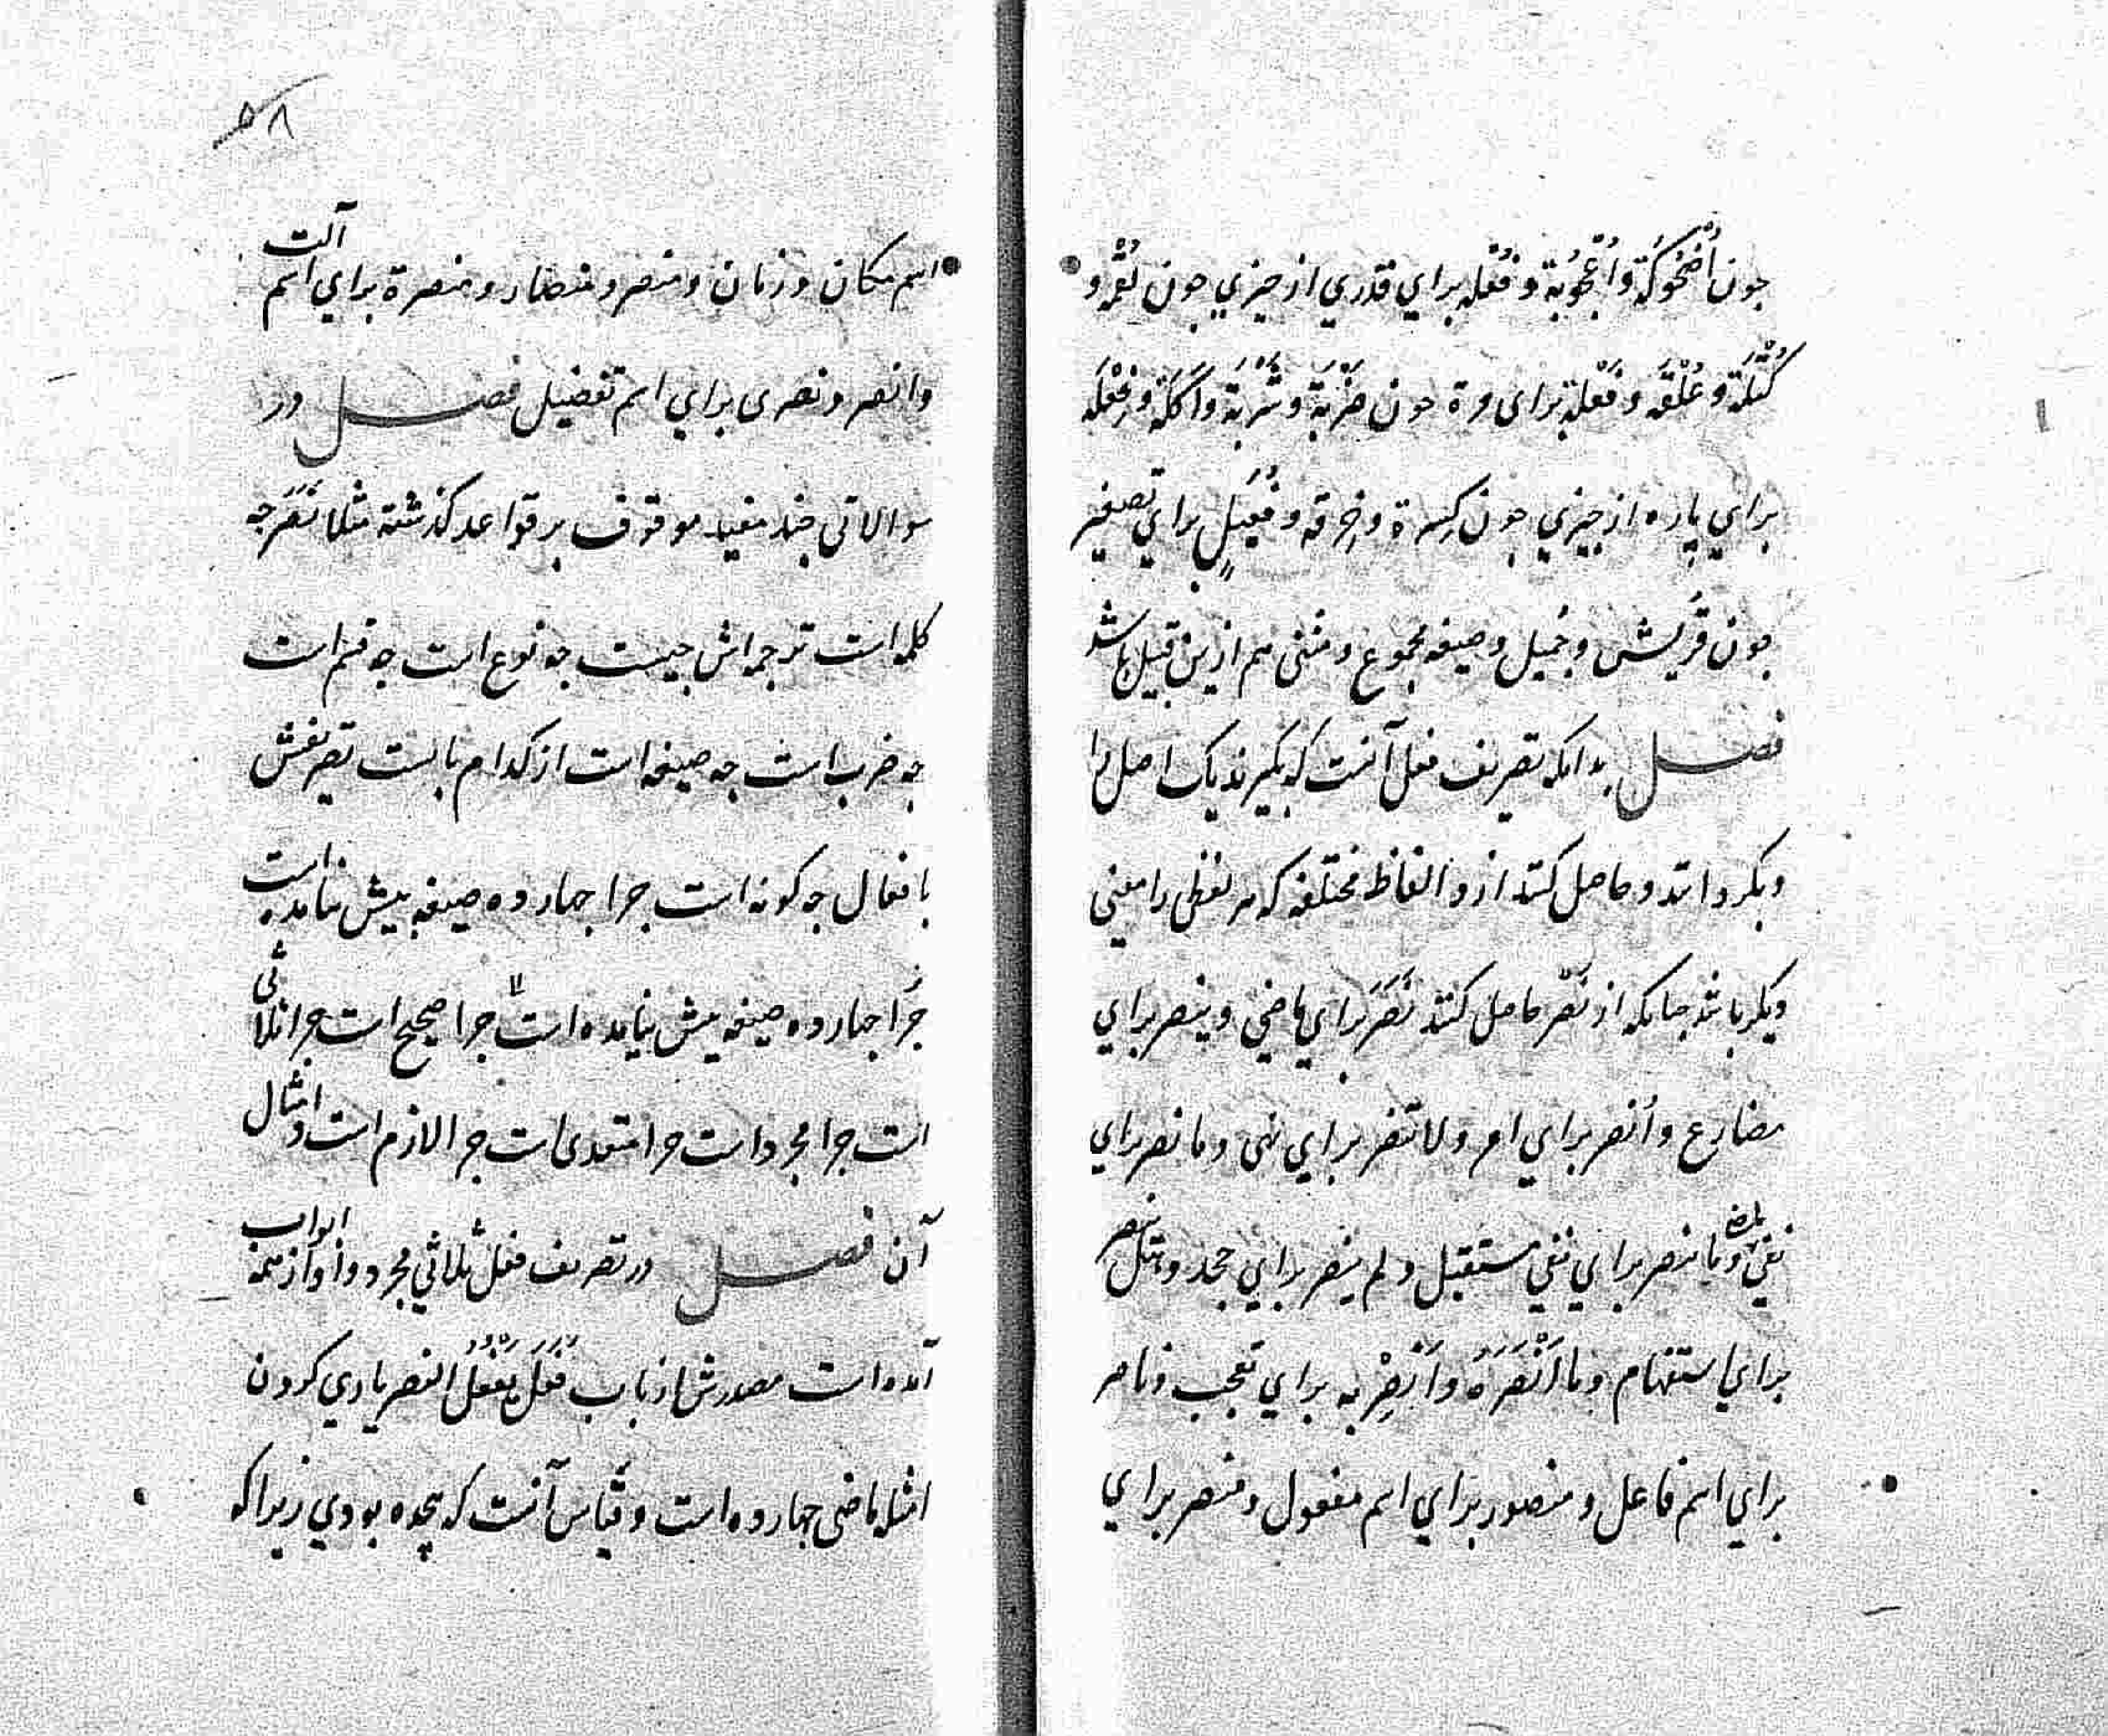 چون اُضْحُوكَة و اُعْجُوبَة و فُعْلَه براي قدري از چيزي چون لُقْمَه و
كُتْلَة و عُلْقَه و فَعْلَة براى مرة چون ضَرْبَة و شَرْبَة و اَكْلَة و فِعْلَه
براي پاره از چيزي چون كِسرة و خِرقه و فُعَيلٍ براي تصغير
چون قُريش و جُميل و صيغه مجموع و مثنى هم ازين قبيل باشد
فصل بدانكه تصريف فعل آنست كه بگيرند يك اصل را
و بگردانند و حاصل كنند ازو الفاظ مختلفه كه هر لفظى را معنى
ديگر باشد چنانكه از نَصْر حاصل كنند نَصَرَ براي ماضي و ينصر براي
مضارع و اُنصر براي امر و لا تنصر براي نهى و ما نصر براي
نفي ماضي و ما ينصر براي نفي مستقبل و لم ينصر براي جحد و هل ينصر
براي استفهام و ما اَنْصَرَهُ و اَنْصِرْ به براي تعجب و ناصر
براي اسم فاعل و منصور براي اسم مفعول و منصر براي
۸
اسم مكان و زمان و منصر و منصار و منصرة براي اسم آلت
و انصر و نصرى براي اسم تفضيل فصل در
سوالاتى چند مفيد موقوف بر قواعد گذشته مثلا نَصَرَ چه
كلمه است ترجمه اش چيست چه نوع است چه قسم است
چه ضرب است چه صيغه است از كدام بابست تصريفش
بافعال چه گونه است چرا چهارده صيغه بيش نيامده است
چرا چهارده صيغه بيش نيامده است چرا صحيح است چرا ثلاثى
است چرا مجرد است چرا متعدى است چرا لازم است و امثال
آن فصل در تصريف فعل ثلاثي مجرد و او از همه ابواب
آمده است مصدرش از باب فَعَلَ يَفْعُلُ النصر ياري كردن
امثله ماضى چهارده است و قياس آنست كه هجده بودي زيرا كه